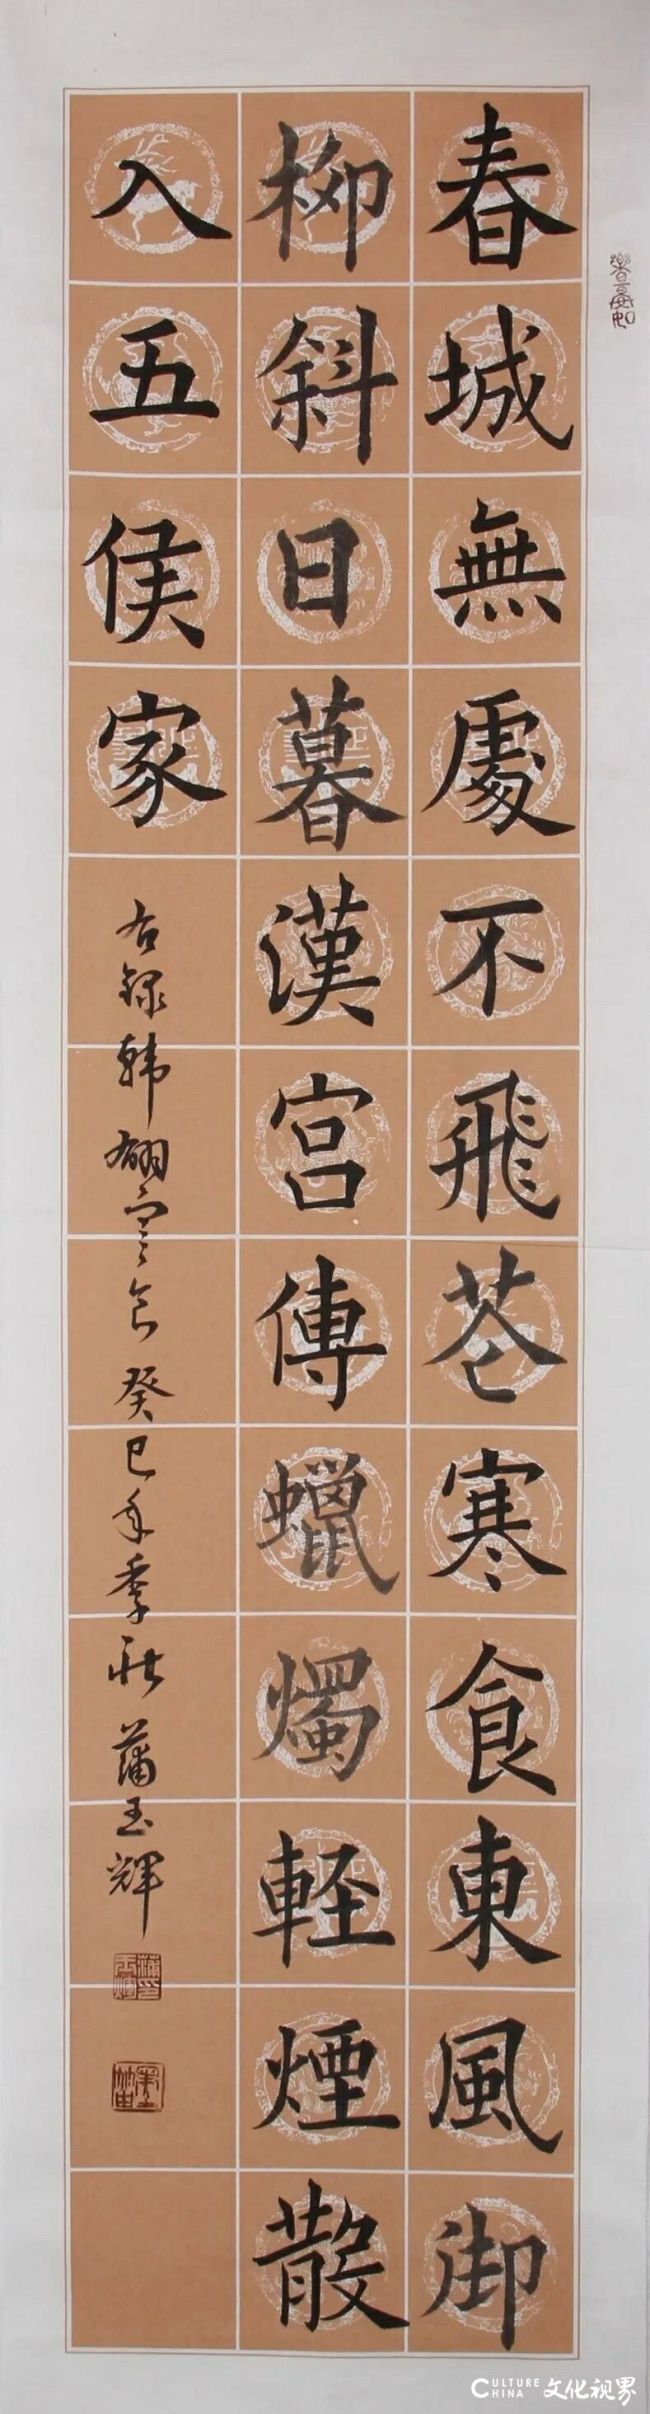 春城無處不飛花寒食東風御
柳斜日暮漢宫傳蠟燭軽煙散
入五侯家
右録韩翃寒食 癸巳年季秋 蒲玉輝
CULTURE CHINA 文化视界